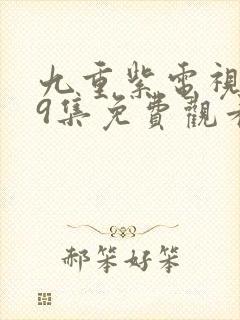 九重紫電視
9集免費觀看
郝笨好笨